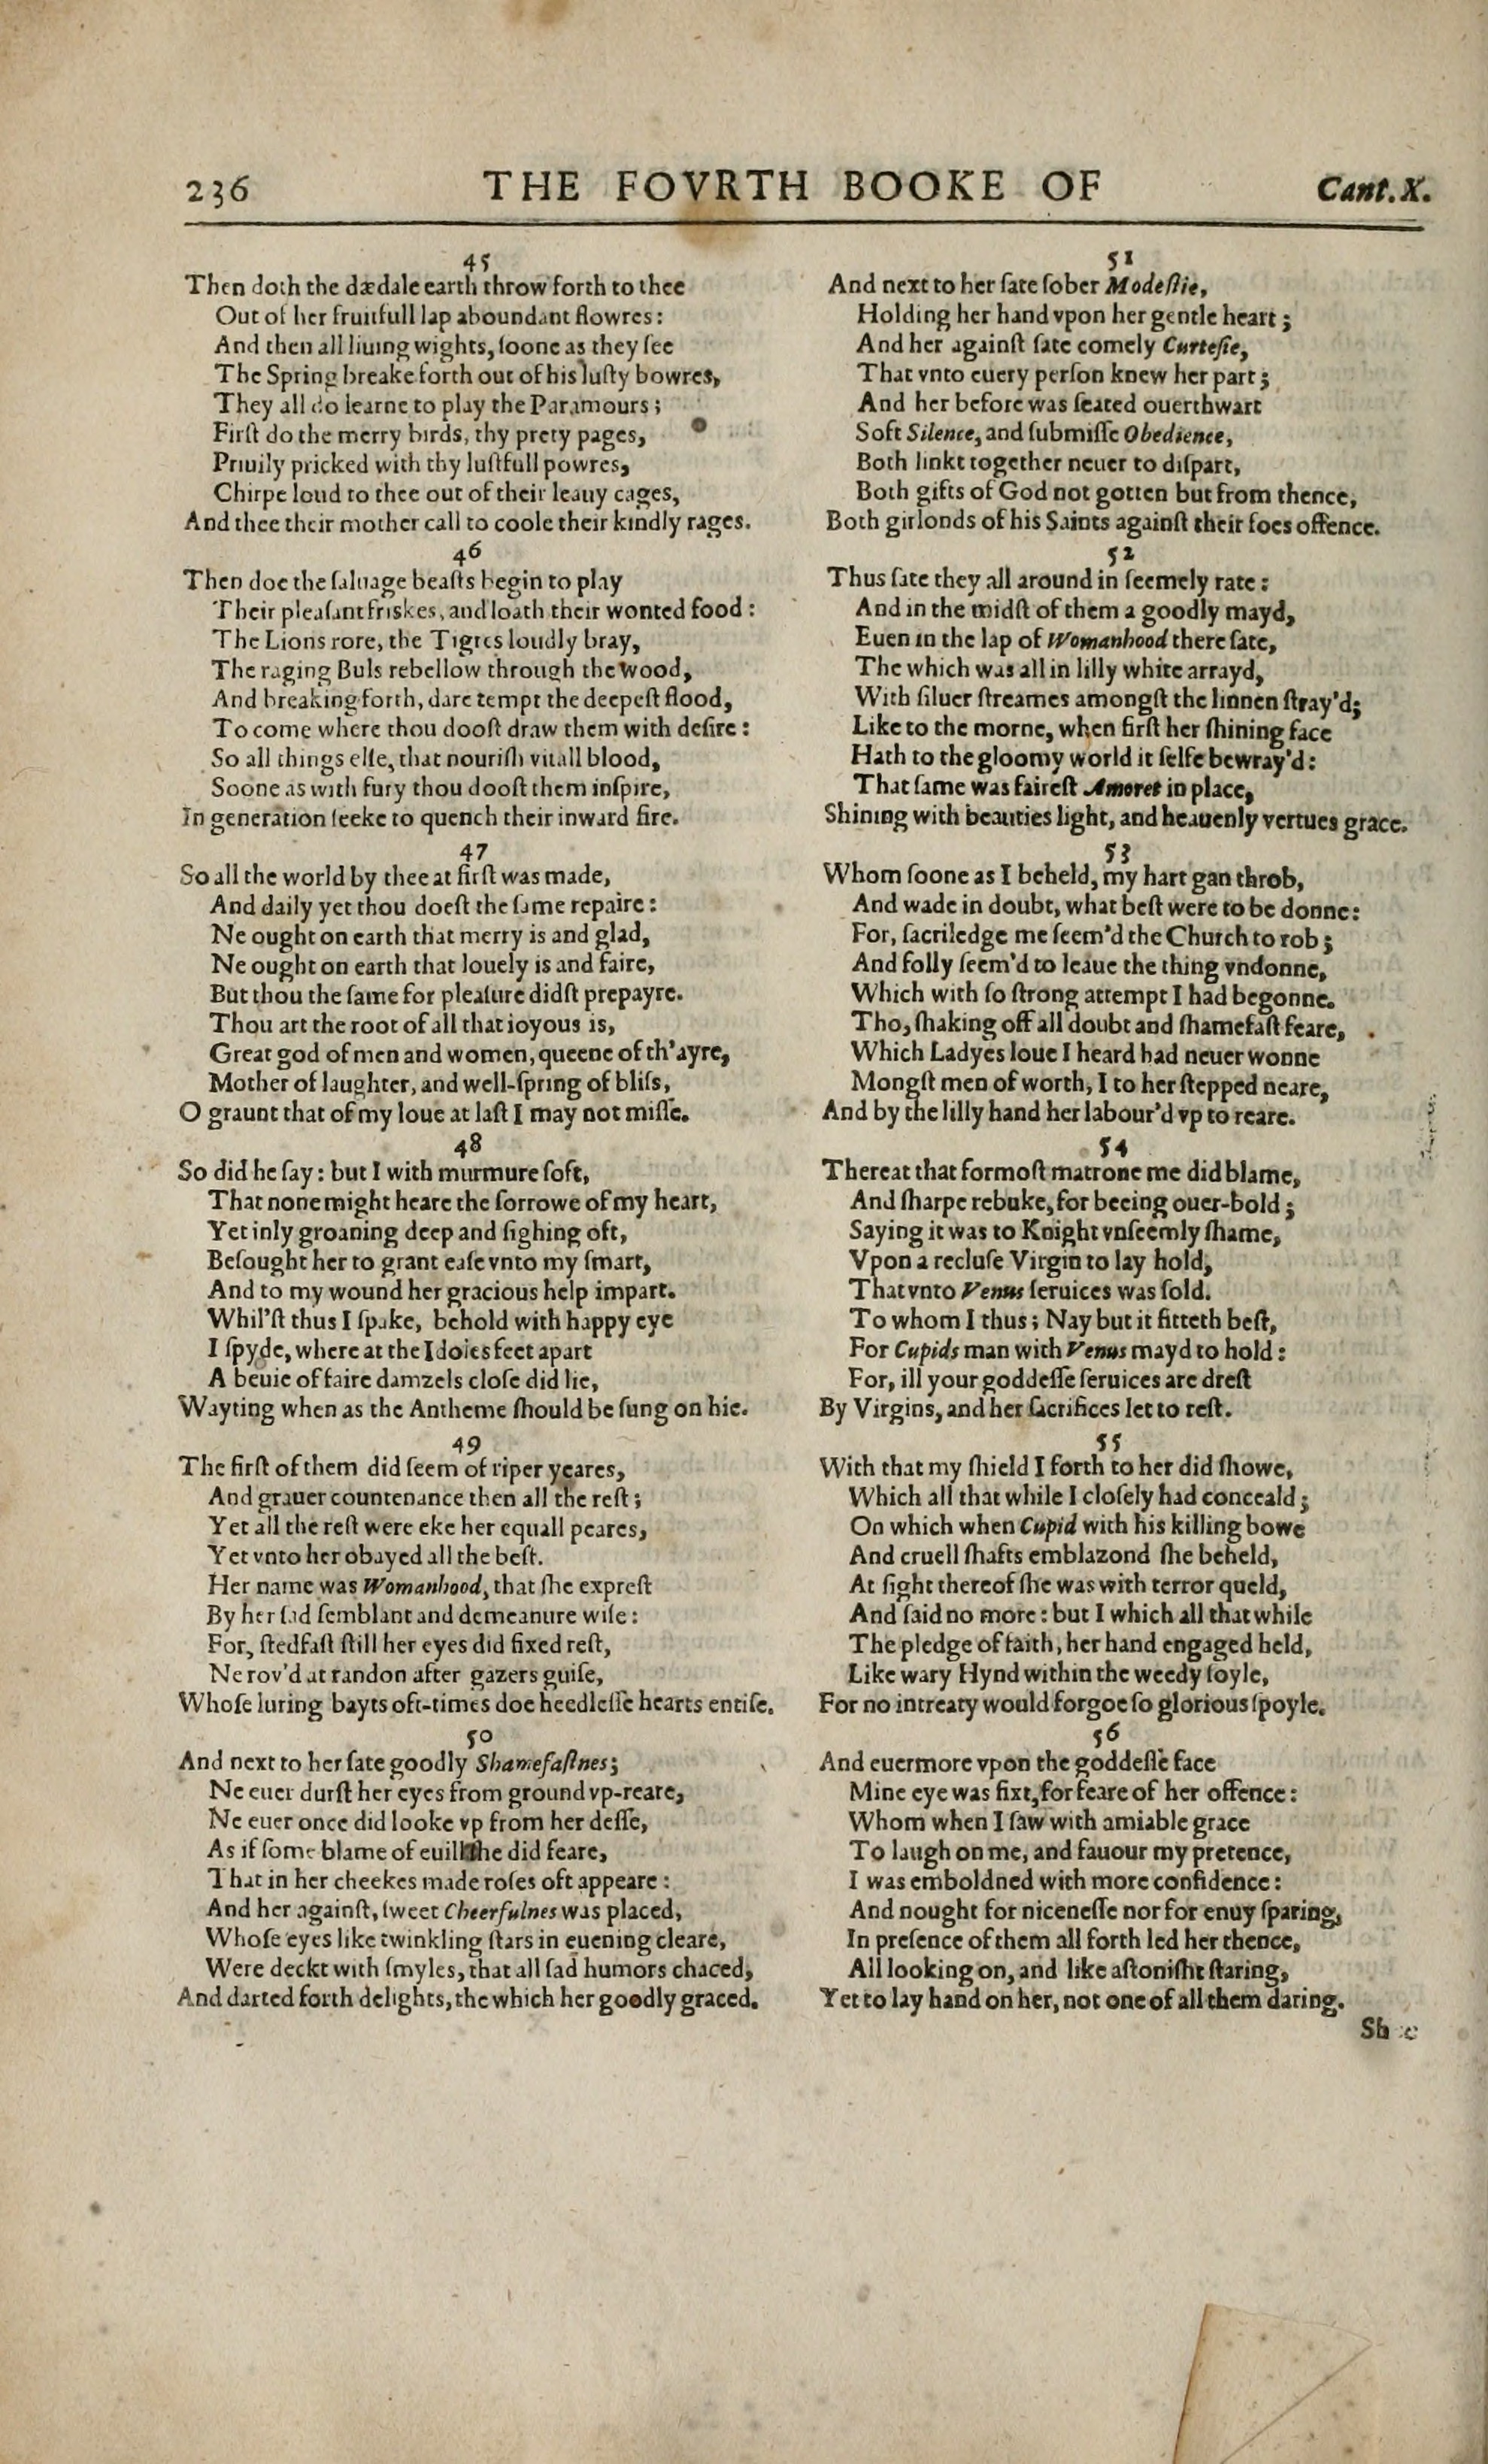 236 THE FOVRTH BOOKE OF Cant.X.
45
Then doth the dædale earth throw forth to thee
Out of her fruitfull lap aboundant flowres:
And then all liuing wights, ſoone as they ſee
The Spring breake forth out of his luſty bowres,
They all do learne to play the Paramours;
Firſt do the merry birds, thy prety pages,
Priuily pricked with thy luſtfull powres,
Chirpe loud to thee out of their leauy cages,
And thee their mother call to coole their kindly rages.
46
Then doe the ſaluage beaſts begin to play
Their pleaſant friskes, and loath their wonted food:
The Lions rore, the Tigres loudly bray,
The raging Buls rebellow through the wood,
And breaking forth, dare tempt the deepeſt flood,
To come where thou dooſt draw them with deſire:
So all things elſe, that nouriſh vitall blood,
Soone as with fury thou dooſt them inſpire,
In generation ſeeke to quench their inward fire.
47
So all the world by thee at firſt was made,
And daily yet thou doeſt the ſame repaire:
Ne ought on earth that merry is and glad,
Ne ought on earth that louely is and faire,
But thou the ſame for pleaſure didſt prepayre.
Thou art the root of all that ioyous is,
Great god of men and women, queene of th'ayre,
Mother of laughter, and well-ſpring of bliſs,
O graunt that of my loue at laſt I may not miſſe.
48
So did he ſay: but I with murmure ſoft,
That none might heare the ſorrowe of my heart,
Yet inly groaning deep and ſighing oft,
Beſought her to grant eaſe vnto my ſmart,
And to my wound her gracious help impart.
Whil'ſt thus I ſpake, behold with happy eye
I ſpyde, where at the Idoles feet apart
A beuie of faire damzels cloſe did lie,
Wayting when as the Antheme ſhould be ſung on hie.
49
The firſt of them did ſeem of riper yeares,
And grauer countenance then all the reſt;
Yet all the reſt were eke her equall peares,
Yet vnto her obayed all the beſt.
Her name was Womanhood, that ſhe expreſt
By her ſad ſemblant and demeanure wiſe:
For, ſtedfaſt ſtill her eyes did fixed reſt,
Ne rov'd at randon after gazers guiſe,
Whoſe luring bayts oft-times doe heedleſſe hearts entiſe.
50
And next to her ſate goodly Shamefaſtnes;
Ne euer durſt her eyes from ground vp-reare,
Ne euer once did looke vp from her deſſe,
As if ſome blame of euill ſhe did feare,
That in her cheekes made roſes oft appeare:
And her againſt, ſweet Cheerfulnes was placed,
Whoſe eyes like twinkling ſtars in euening cleare,
Were deckt with ſmyles, that all ſad humors chaced,
And darted forth delights, the which her goodly graced.
51
And next to her ſate ſober Modeſtie,
Holding her hand vpon her gentle heart;
And her againſt ſate comely Curteſie,
That vnto euery perſon knew her part;
And her before was ſeated ouerthwart
Soft Silence, and ſubmiſſe Obedience,
Both linkt together neuer to diſpart,
Both gifts of God not gotten but from thence,
Both girlonds of his Saints againſt their foes offence.
52
Thus ſate they all around in ſeemely rate:
And in the midſt of them a goodly mayd,
Euen in the lap of Womanhood there ſate,
The which was all in lilly white arrayd,
With ſiluer ſtreames amongſt the linnen ſtray'd;
Like to the morne, when firſt her ſhining face
Hath to the gloomy world it ſelfe bewray'd:
That ſame was faireſt Amoret in place,
Shining with beauties light, and heauenly vertues grace.
53
Whom ſoone as I beheld, my hart gan throb,
And wade in doubt, what beſt were to be donne:
For, ſacriledge me ſeem'd the Church to rob;
And folly ſeem'd to leaue the thing vndonne,
Which with ſo ſtrong attempt I had begonne.
Tho, ſhaking off all doubt and ſhamefaſt feare,
Which Ladyes loue I heard had neuer wonne
Mongſt men of worth, I to her ſtepped neare,
And by the lilly hand her labour'd vp to reare.
54
Thereat that formoſt matrone me did blame,
And ſharpe rebuke, for beeing ouer-bold;
Saying it was to Knight vnſeemly ſhame,
Vpon a recluſe Virgin to lay hold,
That vnto Venus ſeruices was ſold.
To whom I thus; Nay but it fitteth beſt,
For Cupids man with Venus mayd to hold:
For, ill your goddeſſe ſeruices are dreſt
By Virgins, and her ſacrifices let to reſt.
55
With that my ſhield I forth to her did ſhowe,
Which all that while I cloſely had conceald;
On which when Cupid with his killing bowe
And cruell ſhafts emblazond ſhe beheld,
At ſight thereof ſhe was with terror queld,
And ſaid no more: but I which all that while
The pledge of faith, her hand engaged held,
Like wary Hynd within the weedy ſoyle,
For no intreaty would forgoe ſo glorious ſpoyle.
56
And euermore vpon the goddeſſe face
Mine eye was fixt, for feare of her offence:
Whom when I ſaw with amiable grace
To laugh on me, and fauour my pretence,
I was emboldned with more confidence:
And nought for niceneſſe nor for enuy ſparing,
In preſence of them all forth led her thence,
All looking on, and like aſtoniſht ſtaring,
Yet to lay hand on her, not one of all them daring.
She